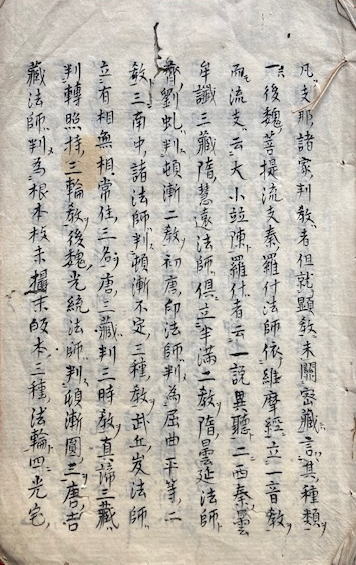 凡支那諸家判教者但就顕教未關密藏言其種類
一後魏菩提流支秦羅什法師依維摩經立一音教
而流支云大小並陳羅什者云一說異聽二西秦曇
牟讖三藏隋慧遠法師俱立半滿二教隋曇延法師
齊劉虬判頓漸二教初唐印法師判為屈曲平等二
教三南中諸法師判頓漸不定三種教武丘岌法師
立有相無相常住三名唐三藏判三時教真諦三藏
判轉照持三輪教後魏光統法師判頓漸圓三唐吉
藏法師判為根本枝末攝末皈本三種法輪四光宅